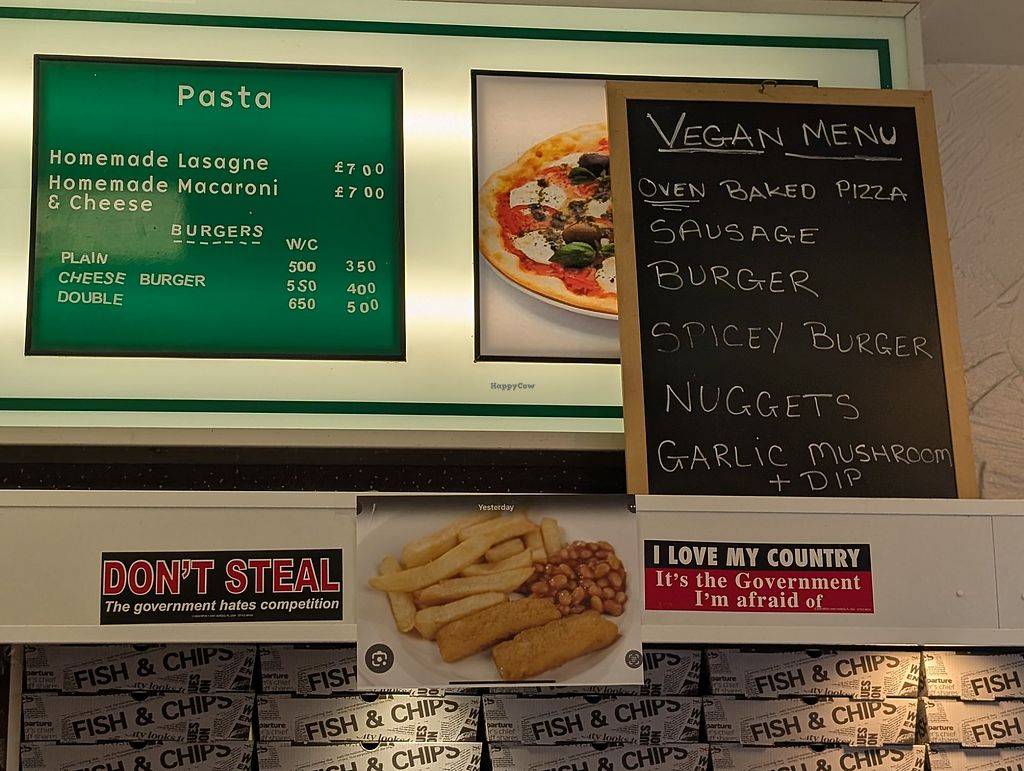 Pasta
Homemade Lasagne £700
Homemade Macaroni £700
& Cheese
BURGERS
W/C
PLAIN 500 350
CHEESE BURGER 550 400
DOUBLE 650 500
VEGAN MENU
OVEN BAKED PIZZA
SAUSAGE
BURGER
SPICEY BURGER
NUGGETS
GARLIC MUSHROOM
+ DIP
HappyCow
Yesterday
DON'T STEAL
The government hates competition
I LOVE MY COUNTRY
It's the Government
I'm afraid of
FISH & CHIPS
FISH & CHIPS
FISH & CHIPS
FISH & CHIPS
FISH &
FISH & CHIPS
FISH & CHIPS
FISH & CHIPS
FISH & CHIPS
FISH &
FISH & CHIPS
FISH & CHIPS
FISH & CHIPS
FISH & CHIPS